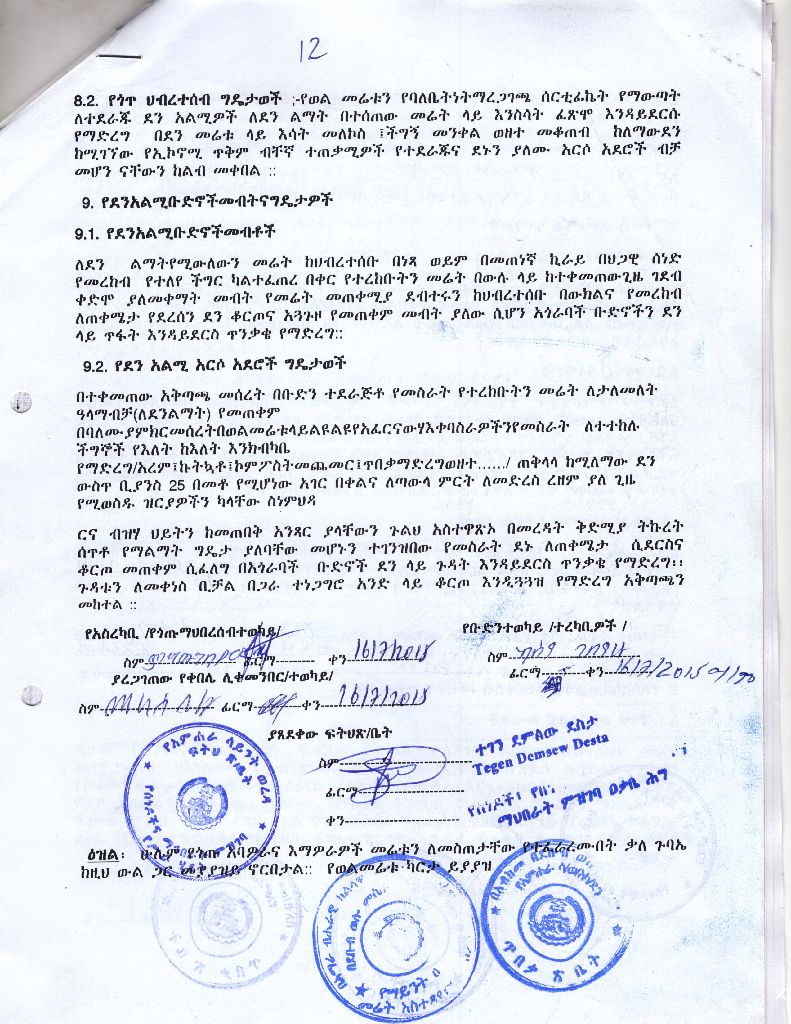 12
8.2. የጎጥ ህብረተሰብ ግዴታወች ;-የወል መሬቱን የባለቤትነትማረጋገጫ ሰርቲፊኬት የማውጣት
ለተደራጁ ደን አልሚዎች ለደን ልማት በተሰጠው መሬት ላይ እንስሳት ፈጽሞ እንዳይደርሱ
የማድረግ በደን መሬቱ ላይ እሳት መለኮስ ፤ችግኝ መንቀል ወዘተ መቆጠብ ከለማውደን
ከሚገኘው የኢኮኖሚ ጥቅም ብቸኛ ተጠቃሚዎች የተደራጁና ደኑን ያለሙ አርሶ አደሮች ብቻ
መሆን ናቸውን ከልብ መቀበል ::
9. የደንአልሚቡድኖችመብትናግዴታዎች
9.1. የደንአልሚቡድኖችመብቶች
ለደን ልማትየሚውለውን መሬት ከህብረተሰቡ በነጻ ወይም በመጠነኛ ኪራይ በህጋዊ ሰነድ
የመረከብ የተለየ ችግር ካልተፈጠረ በቀር የተረከቡትን መሬት በውሉ ላይ ከተቀመጠውጊዜ ገደብ
ቀድሞ ያለመቀማት መብት የመሬት መጠቀሚያ ደብተሩን ከህብረተሰቡ በውክልና የመረከብ
ለጠቀሜታ የደረሰን ደን ቆርጦና አጓጉዞ የመጠቀም መብት ያለው ሲሆን አጎራባች ቡድኖችን ደን
ላይ ጥፋት እንዳይደርስ ጥንቃቄ የማድረግ::
9.2. የደን አልሚ አርሶ አደሮች ግዴታወች
በተቀመጠው አቅጣጫ መሰረት በቡድን ተደራጅቶ የመስራት የተረከቡትን መሬት ለታለመለት
ዓላማብቻ(ለደንልማት) የመጠቀም
በባለሙያምክርመሰረትበወልመሬቱላይልዩልዩየአፈርናውሃእቀባስራዎችንየመስራት ለተተከሉ
ችግኞች የእለት ከእለት እንክብካቤ
የማድረግ/አረም፤ኩትኳቶ፤ኮምፖስትመጨመር፤ጥበቃማድረግወዘተ....../ ጠቅላላ ከሚለማው ደን
ውስጥ ቢያንስ 25 በመቶ የሚሆነው አገር በቀልና ለጣውላ ምርት ለመድረስ ረዘም ያለ ጊዜ
የሚወስዱ ዝርያዎችን ካላቸው ስነምህዳ
ርና ብዝሃ ህይትን ከመጠበቅ አንጻር ያላቸውን ጉልህ አስተዋጽኦ በመረዳት ቅድሚያ ትኩረት
ሰጥቶ የማልማት ግዴታ ያለባቸው መሆኑን ተገንዝበው የመስራት ደኑ ለጠቀሜታ ሲደርስና
ቆርጦ መጠቀም ሲፈለግ በአጎራባች ቡድኖች ደን ላይ ጉዳት እንዳይደርስ ጥንቃቄ የማድረግ፡፡
ጉዳቱን ለመቀነስ ቢቻል በጋራ ተነጋግሮ አንድ ላይ ቆርጦ እንዲጓጓዝ የማድረግ አቅጣጫን
መከተል ::
የአስረካቢ /የጎጡማህበረሰብተወካይ/ የቡድንተወካይ /ተረካቢዎች /
ስም ፊርማ---------- ቀን 16/7/2015 ስም
ፊርማ-----------ቀን 16/7/2015
ያረጋገጠው የቀበሌ ሊቀመንበር/ተወካይ/
ስም ፊርማ ቀን 16/7/2015
ያጸደቀው ፍትህጽ/ቤት
ስም
ፊርማ
ቀን
ተገን ደምልው ደስታ
Tegen Demsew Desta
የሰነዶች፤ የበ
ማህበራት ምዝገባ ዐቃቤ ሕግ
ዕዝል፡ ሁሉም የጎጡ አባዎራና እማዎራዎች መሬቱን ለመስጠታቸው የተፈራረሙበት ቃለ ጉባኤ
ከዚህ ውል ጋር መያያዝይ ኖርበታል:: የወልመሬቱ ካርታ ይያያዝ
የአምሐራ ሳይንት ወረዳ
ፍትህ ጽ/ቤት
የማይንት ቀ
መሬት አስተዳደር
ጥበቃ ጽ ቤት